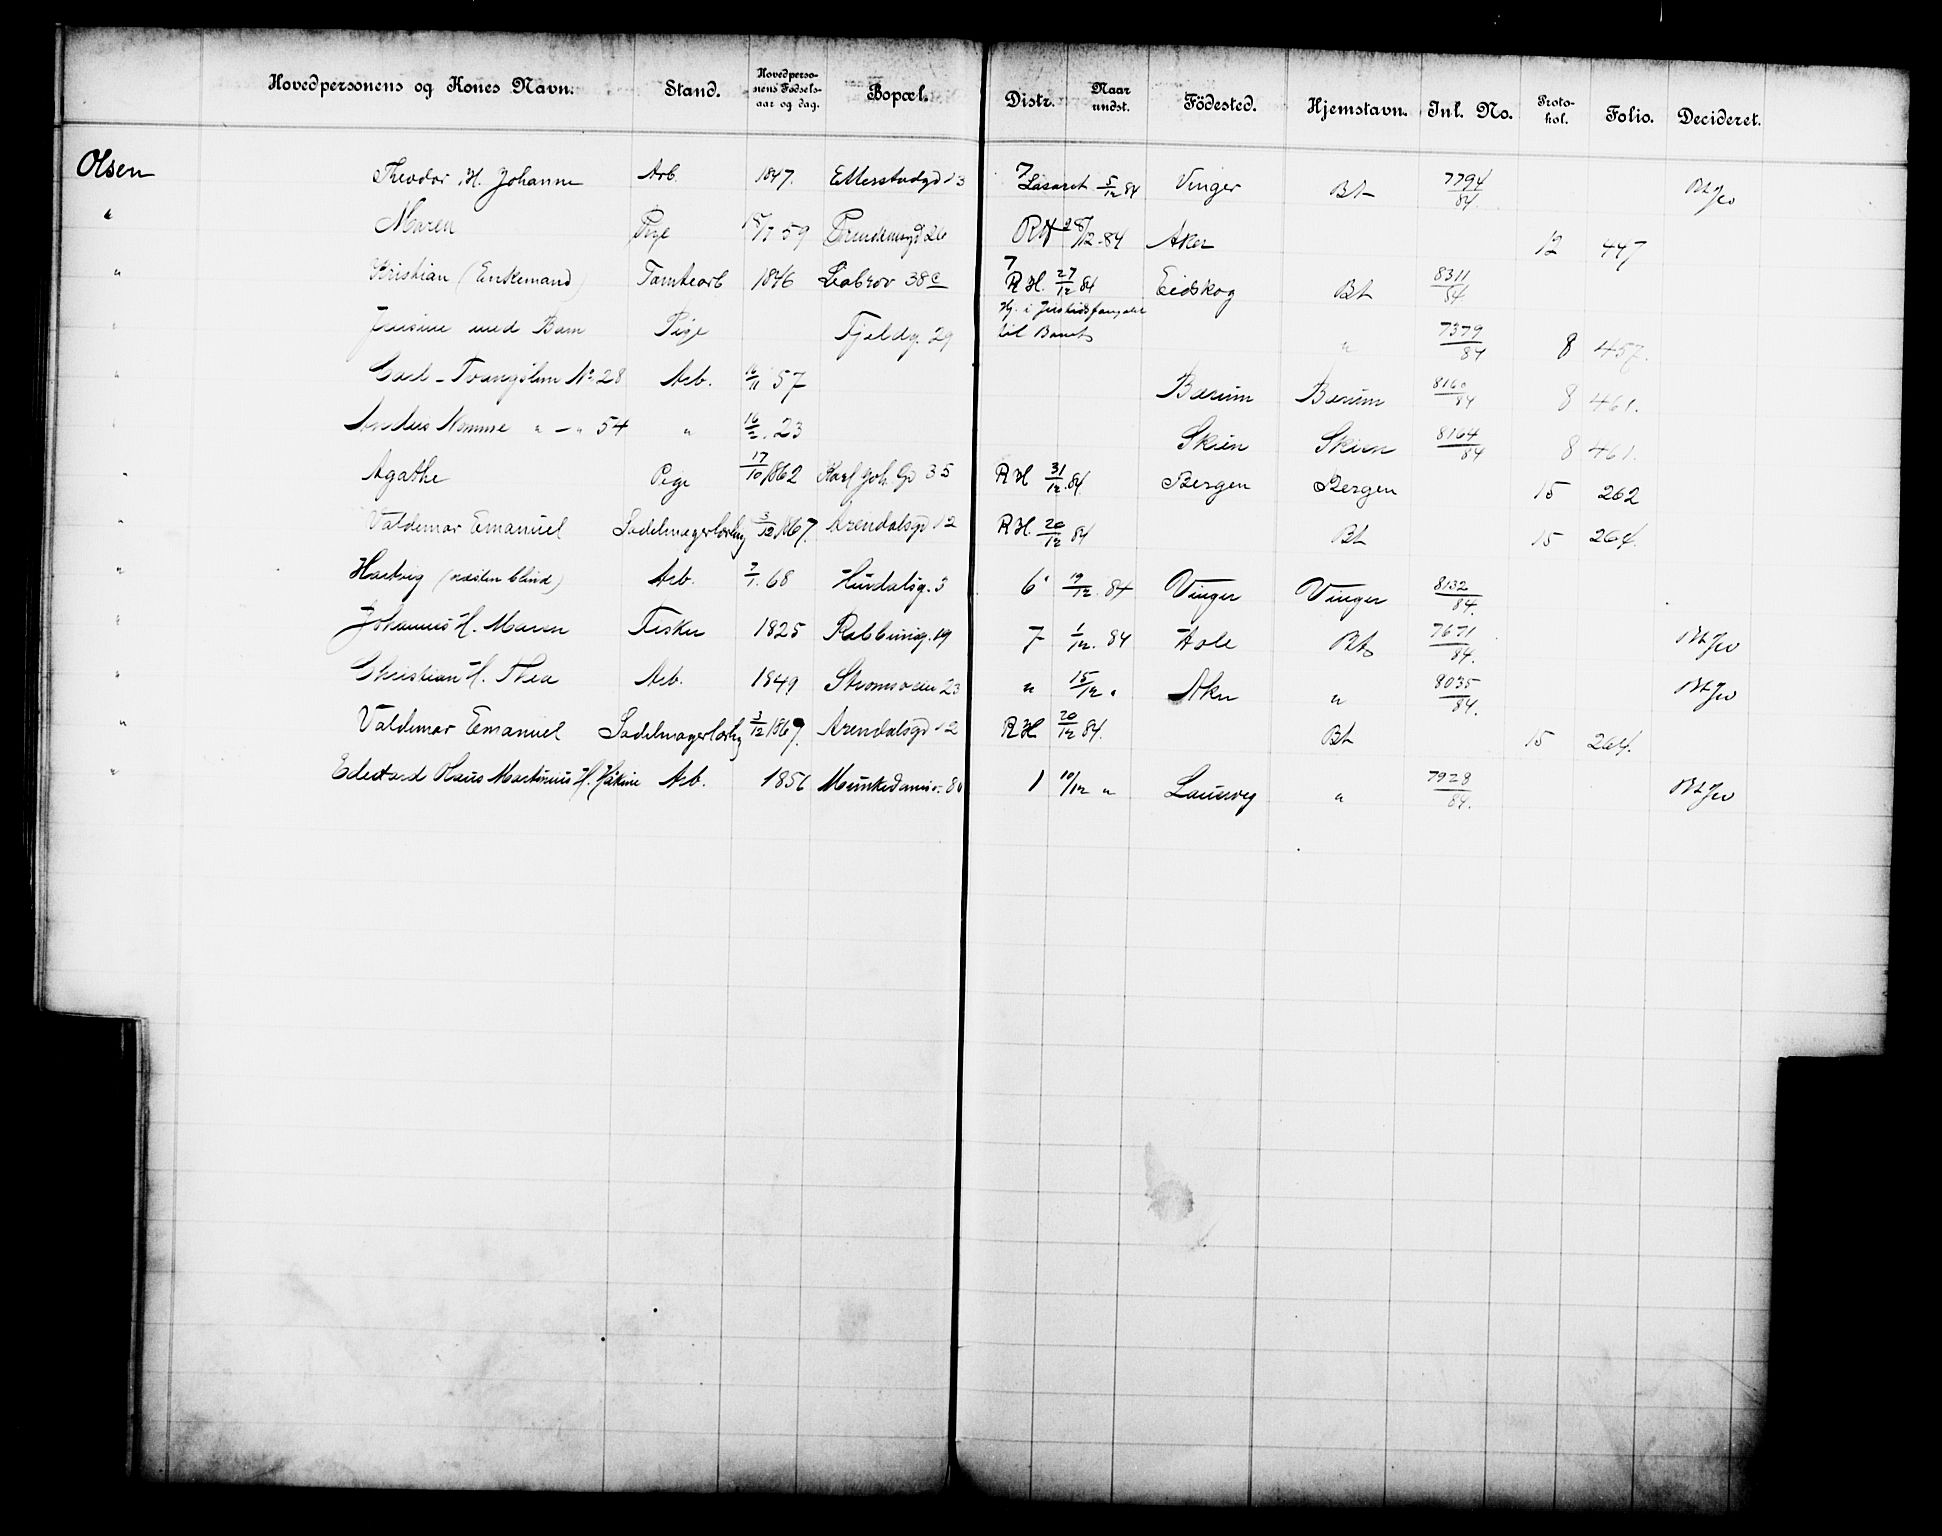 Hovedpersonens og Kones Navn. Stand. Hovedpersonens Fødselsaar og dag. Bopæl. Distr. Naar undst. Födested. Hjemstavn. Inl. No. Protokol. Folio. Decideret.
Olsen Theodor H. Johanne Arb. 1847. Etterstadgd 13 7 Lasaret 5/12 84 Vinger Bt 7794/84.
" Maren Pige 59 26 RH 28/12.84 Aker 12 447
" Kristian (Enkemand) Tomtearb 1846 Liabrov 38c 7 R.H. 27/12 84 Eidskog Bt 8311/84
" med Barn Pige Fjeldg. 29 til Barnet " 7379/84 8 457.
" Carl - Tvangslem No 28 Arb. 16/11 57 Bærum Bærum 8160/84 8 461.
" Anders " - " 54 " 23 Skien Skien 8164/84 8 461.
" Agathe Pige 17/10 1862 Karl Joh. Gd 35 RH 31/12.84. Bergen Bergen 15 262
" Valdemar Emanuel Sadelmagerlærling 3/12 1867. Arendalsgd 12 R.H. 20/12 84 Bt 15 264.
" Hartvig (næsten blind) Arb. 7/1. 68 Hurdalsg. 3 6 19/12. 84 Vinger Vinger 8132/84.
" Johannes H. Maren Fisker 1825 19 7 1/12. 84 Hole Bt 7671/84.
" Christian H. Thea Arb. 1849 Strømsveien 23 " 15/12 " Aker " 8035/84.
" Valdemar Emanuel Sadelmagerlærling 3/12 1867. Arendalsgd 12 RH 20/12 84. Bt 15 264.
" Edevard Olaus Martinius H. Arb. 1856 1 10/12 " Laurvig " 7928/84.